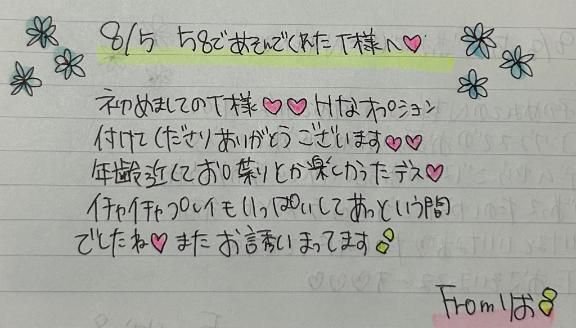 8/5 58であそんでくれたT様へ♡
初めましてのT様♡♡Hなオプション
付けてくださりありがとうございます♡♡
年齢近くてお喋りとか楽しかったデス♡
イチャイチャプレイもいっぱいしてあっという間
でしたね♡またお誘いまってます
Fromりお